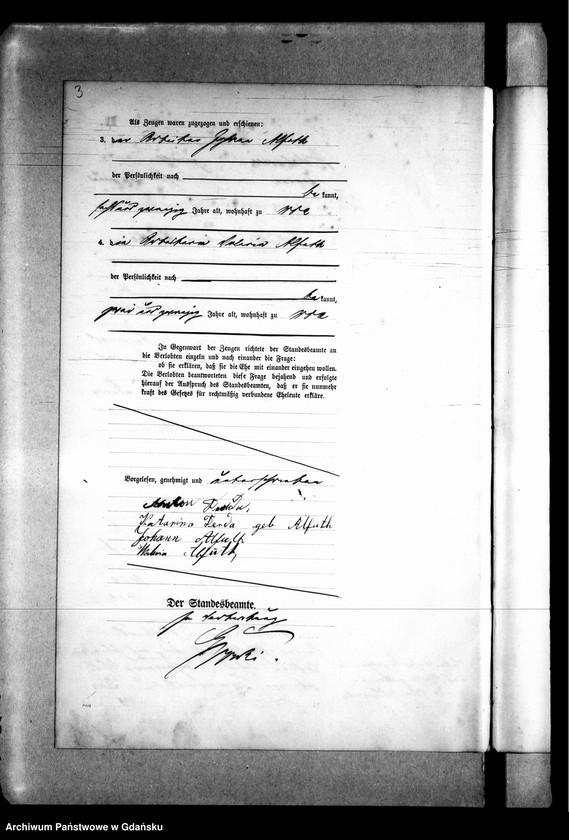 3
Als Zeugen waren zugezogen und erschienen:
3. der Arbeiter Johann Alfuth
der Persönlichkeit nach
bekannt,
Jahre alt, wohnhaft zu
4. die Arbeiterin Valeria Alfuth
der Persönlichkeit nach
bekannt,
zwei und zwanzig Jahre alt, wohnhaft zu
In Gegenwart der Zeugen richtete der Standesbeamte an
die Verlobten einzeln und nach einander die Frage:
ob sie erklären, daß sie die Ehe mit einander eingehen wollen.
Die Verlobten beantworteten diese Frage bejahend und erfolgte
hierauf der Ausspruch des Standesbeamten, daß er sie nunmehr
kraft des Gesetzes für rechtmäßig verbundene Eheleute erkläre.
Vorgelesen, genehmigt und unterschrieben
Anton Derda,
Katarina Derda geb Alfuth
Johann Alfuth
Alfuth
Der Standesbeamte.
In Vertretung
Archiwum Państwowe w Gdańsku